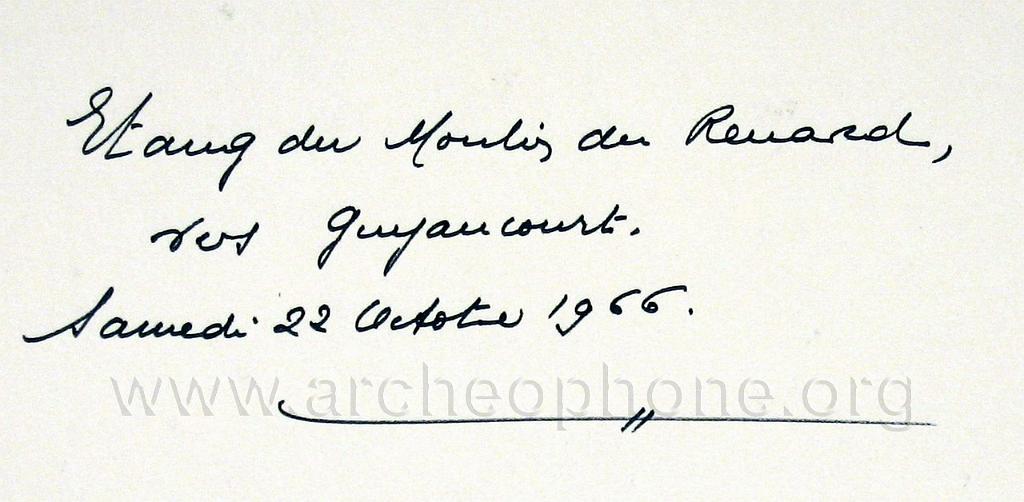 Etang du Moulin du Renard,
vers Guyancourt.
Samedi 22 Octobre 1966.
www.archeophone.org